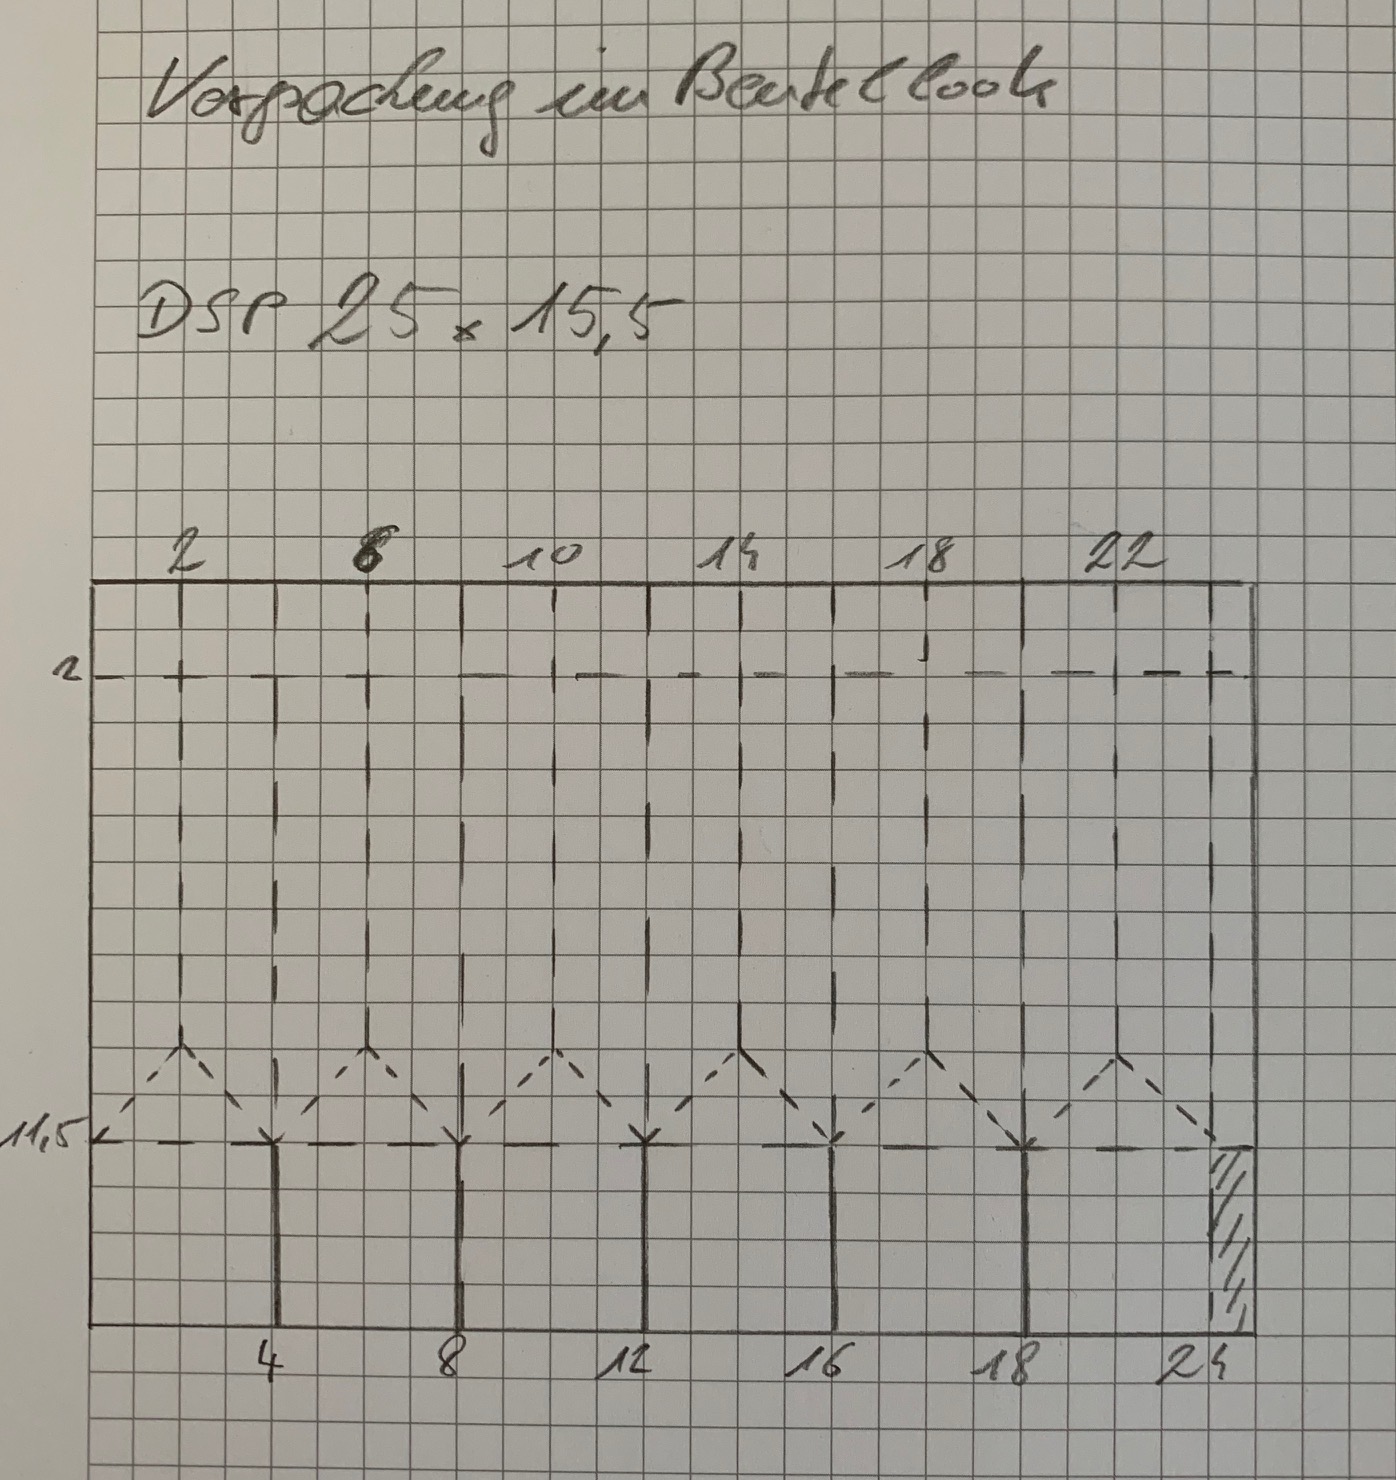 Verpackung im Beutellook
DSP 25 x 15,5
2 6 10 14 18 22
2
11,5
4 8 12 16 18 24